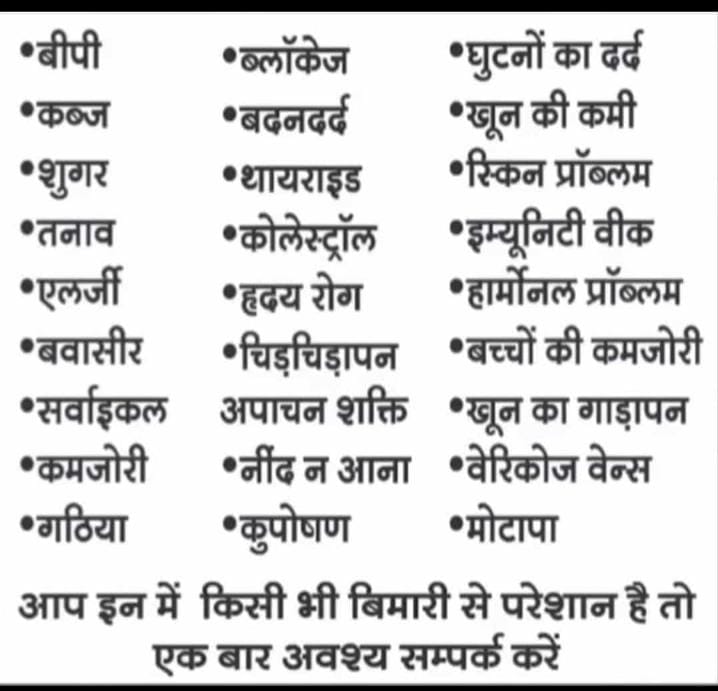 •बीपी
•कब्ज
•शुगर
•तनाव
•एलर्जी
•बवासीर
•सर्वाइकल
•कमजोरी
•गठिया
•ब्लॉकेज
•बदनदर्द
•थायराइड
•कोलेस्ट्रॉल
•हृदय रोग
•चिड़चिड़ापन
अपाचन शक्ति
•नींद न आना
•कुपोषण
•घुटनों का दर्द
•खून की कमी
•स्किन प्रॉब्लम
•इम्यूनिटी वीक
•हार्मोनल प्रॉब्लम
•बच्चों की कमजोरी
•खून का गाड़ापन
•वेरिकोज वेन्स
•मोटापा
आप इन में किसी भी बिमारी से परेशान है तो
एक बार अवश्य सम्पर्क करें